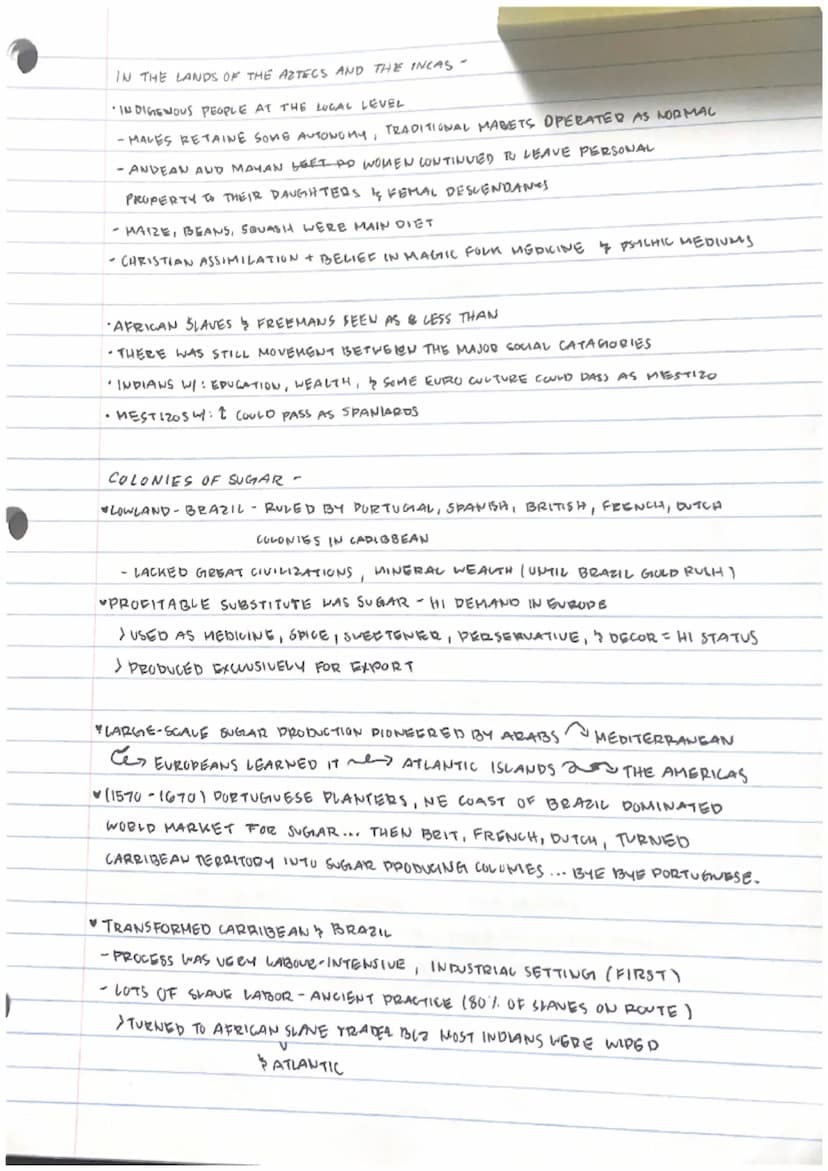 IN THE LANDS OF THE AZTECS AND THE INCAS -
• INDIGENOUS PEOPLE AT THE LOCAL LEVEL
- MALES RETAINE SOME AUTONOMY, TRADITIONAL MAKETS OPERATED AS NORMAL
- ANDEAN AND MAYAN WOMEN CONTINUED TO LEAVE PERSONAL
PROPERTY TO THEIR DAUGHTERS & FEMAL DESCENDANTS
- MAIZE, BEANS, SQUASH WERE MAIN DIET
- CHRISTIAN ASSIMILATION + BELIEF IN MAGIC FOLK MEDICINE & PSYCHIC MEDIUMS
• AFRICAN SLAVES & FREEMANS SEEN AS LESS THAN
• THERE WAS STILL MOVEMENT BETWEEN THE MAJOR SOCIAL CATAGORIES
• INDIANS W/: EDUCATION, WEALTH, & SOME EURO CULTURE COULD PASS AS MESTIZO
• MESTIZOS W/: ↑ COULD PASS AS SPANIARDS
COLONIES OF SUGAR -
♥ LOWLAND - BRAZIL - RULED BY PORTUGAL, SPANISH, BRITISH, FRENCH, DUTCH
COLONIES IN CARIBBEAN
- LACKED GREAT CIVILIZATIONS, MINERAL WEALTH (UNTIL BRAZIL GOLD RUSH)
♥ PROFITABLE SUBSTITUTE WAS SUGAR - HI DEMAND IN EUROPE
> USED AS MEDICINE, SPICE, SWEETENER, PERSERVATIVE, & DECOR = HI STATUS
> PRODUCED EXCLUSIVELY FOR EXPORT
♥ LARGE-SCALE SUGAR PRODUCTION PIONEERED BY ARABS → MEDITERRANEAN
→ EUROPEANS LEARNED IT → ATLANTIC ISLANDS → THE AMERICAS
♥ (1570 - 1670) PORTUGUESE PLANTERS, NE COAST OF BRAZIL DOMINATED
WORLD MARKET FOR SUGAR... THEN BRIT, FRENCH, DUTCH, TURNED
CARRIBEAN TERRITORY INTO SUGAR PRODUCING COLONIES ... BYE BYE PORTUGUESE.
♥ TRANSFORMED CARRIBEAN & BRAZIL
- PROCESS WAS VERY LABOUR-INTENSIVE, INDUSTRIAL SETTING (FIRST)
- LOTS OF SLAVE LABOR - ANCIENT PRACTICE (80% OF SLAVES ON ROUTE)
> TURNED TO AFRICAN SLAVE TRADE BCZ MOST INDIANS WERE WIPED
& ATLANTIC